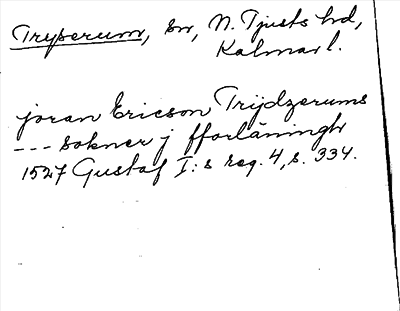 Tryserum, sn, N. Tjusts hd,
Kalmar l.
joran Ericson Trijdzerums
--- sokner j fforläningh
1527 Gustaf I:s reg. 4, s. 334.